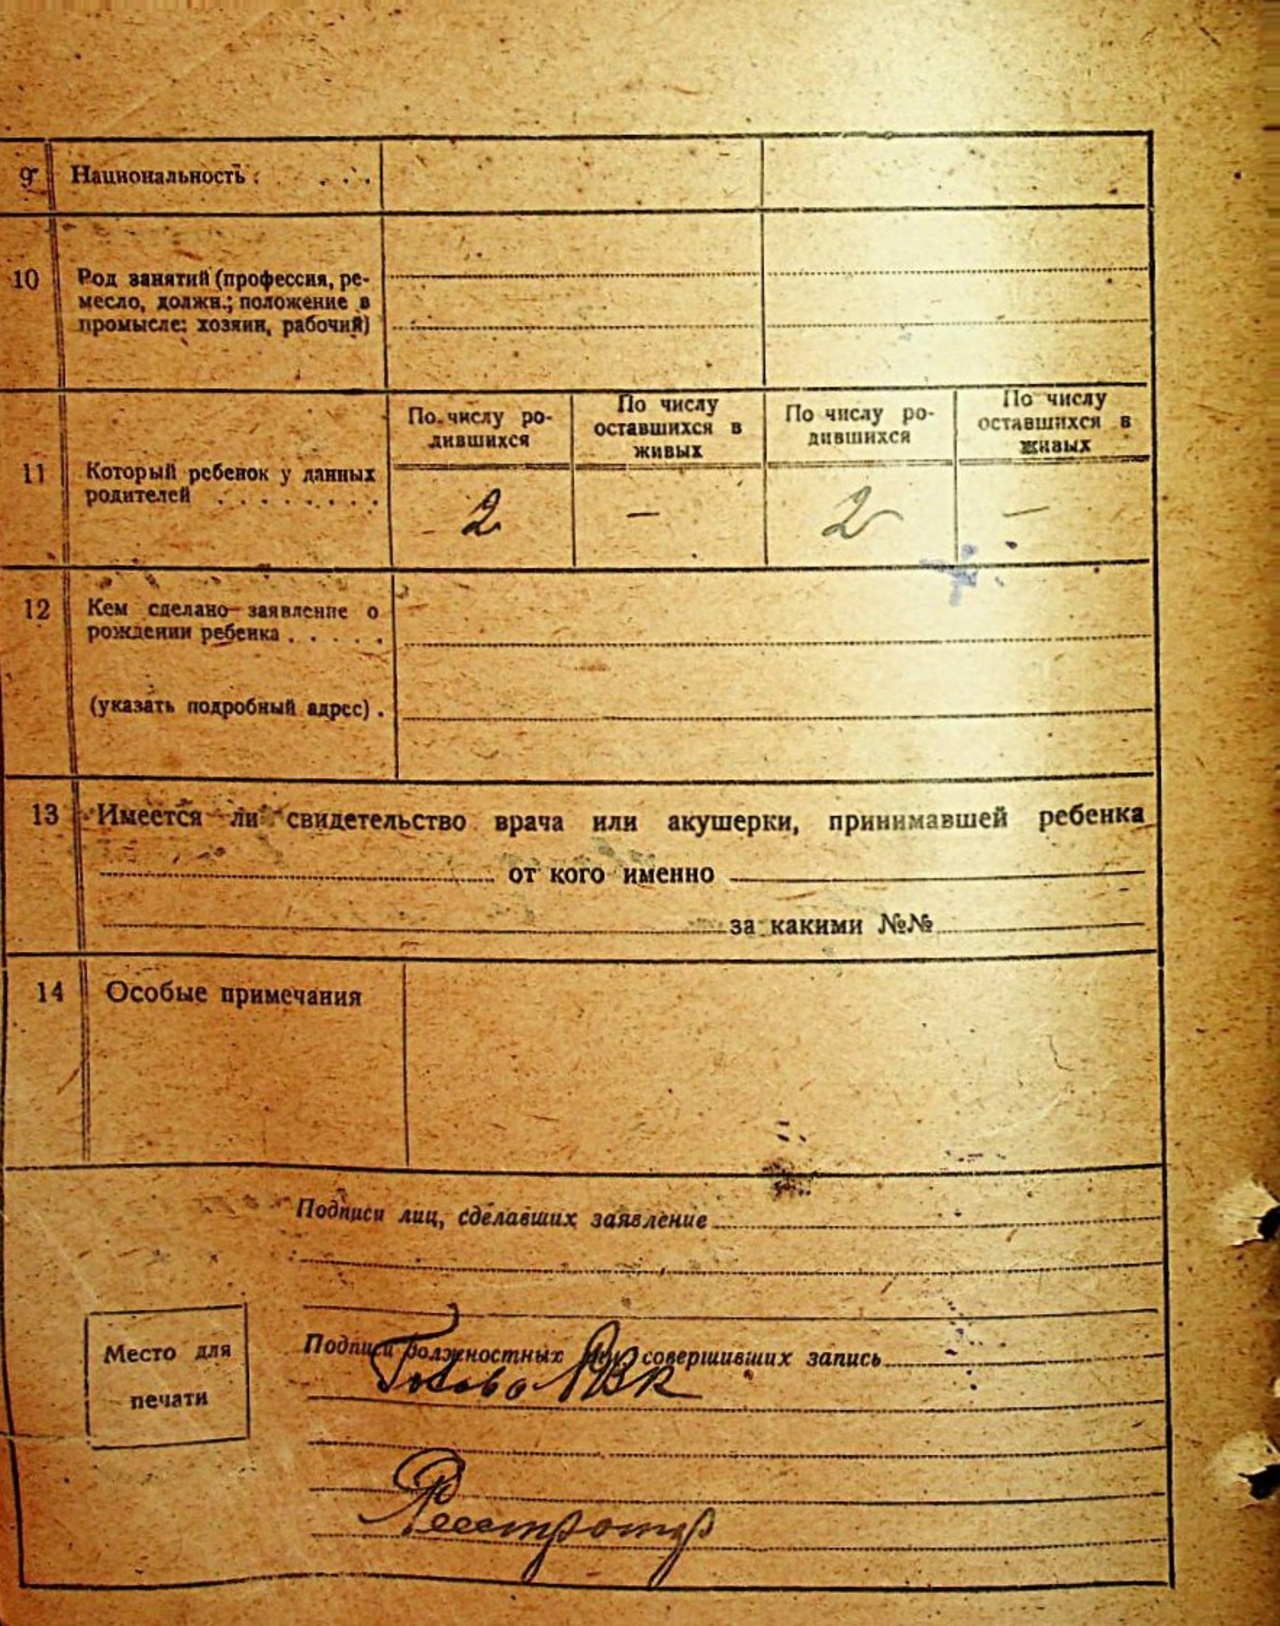 9 Национальность . . . .
10 Род занятий (профессия, ре-
месло, должн.; положение в
промысле: хозяин, рабочий)
По числу ро-
дившихся
По числу
оставшихся в
живых
По числу ро-
дившихся
По числу
оставшихся в
живых
11 Который ребенок у данных
родителей . . . . . . . .
2 — 2 —
12 Кем сделано заявление о
рождении ребенка . . . . .
(указать подробный адрес) .
13 Имеется ли свидетельство врача или акушерки, принимавшей ребенка
от кого именно
за какими №№
14 Особые примечания
Подписи лиц, сделавших заявление
Место для
печати
Подписи должностных лиц, совершивших запись